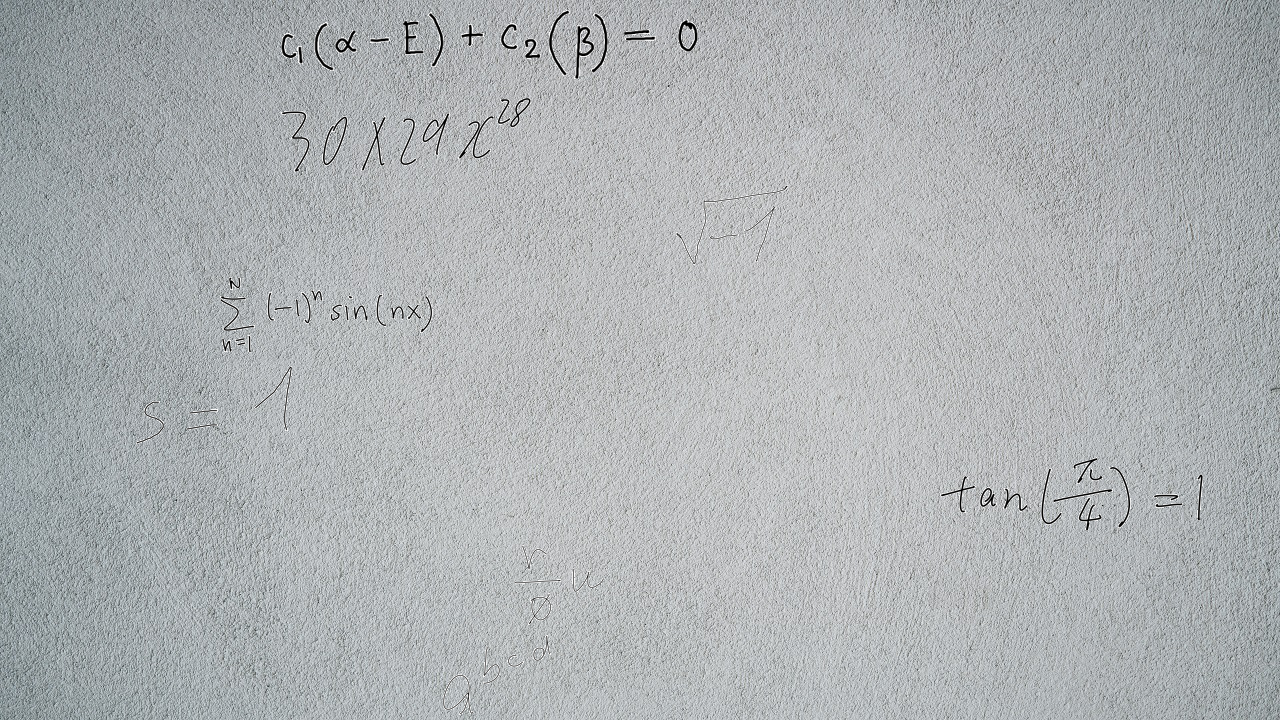 c₁(α − E) + c₂(β) = 0
30 × 29 x²⁸
√−1
∑ₙ₌₁ᴺ (−1)ⁿ sin(nx)
s = 1
tan(π/4) = 1
r/∅ u
a^bcd